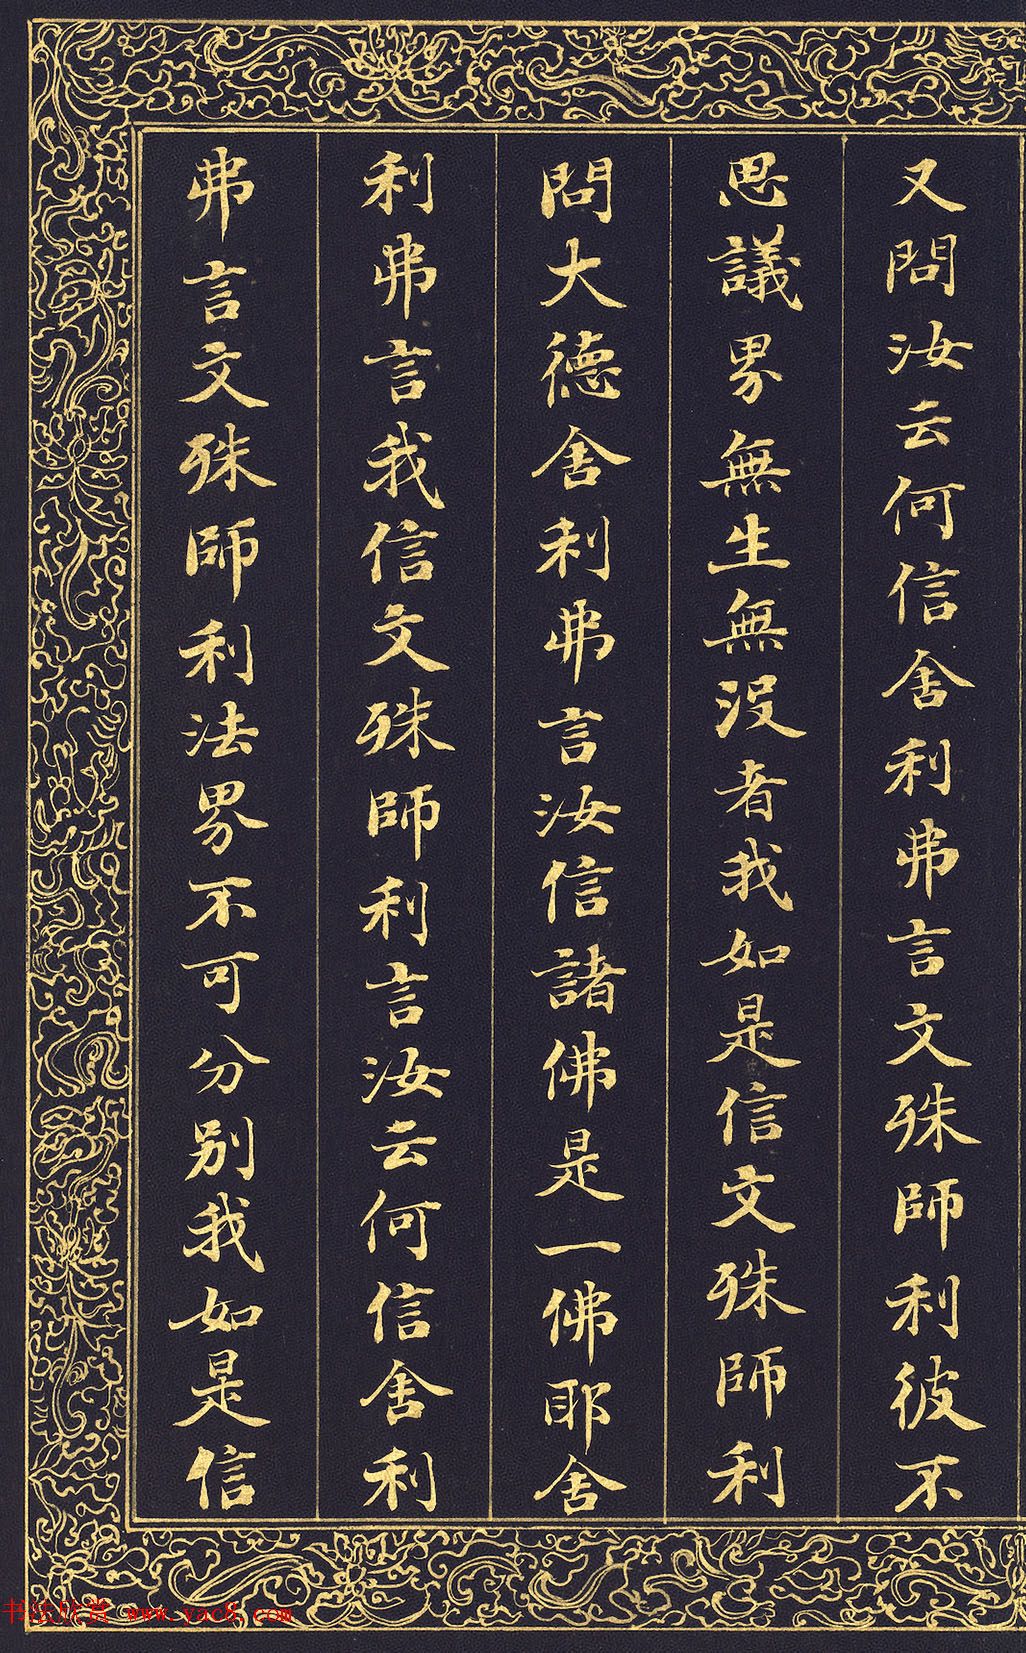 又問汝云何信舍利弗言文殊師利彼不
思議界無生無沒者我如是信文殊師利
問大德舍利弗言汝信諸佛是一佛耶舍
利弗言我信文殊師利言汝云何信舍利
弗言文殊師利法界不可分別我如是信
书法欣赏 www.yac8.com